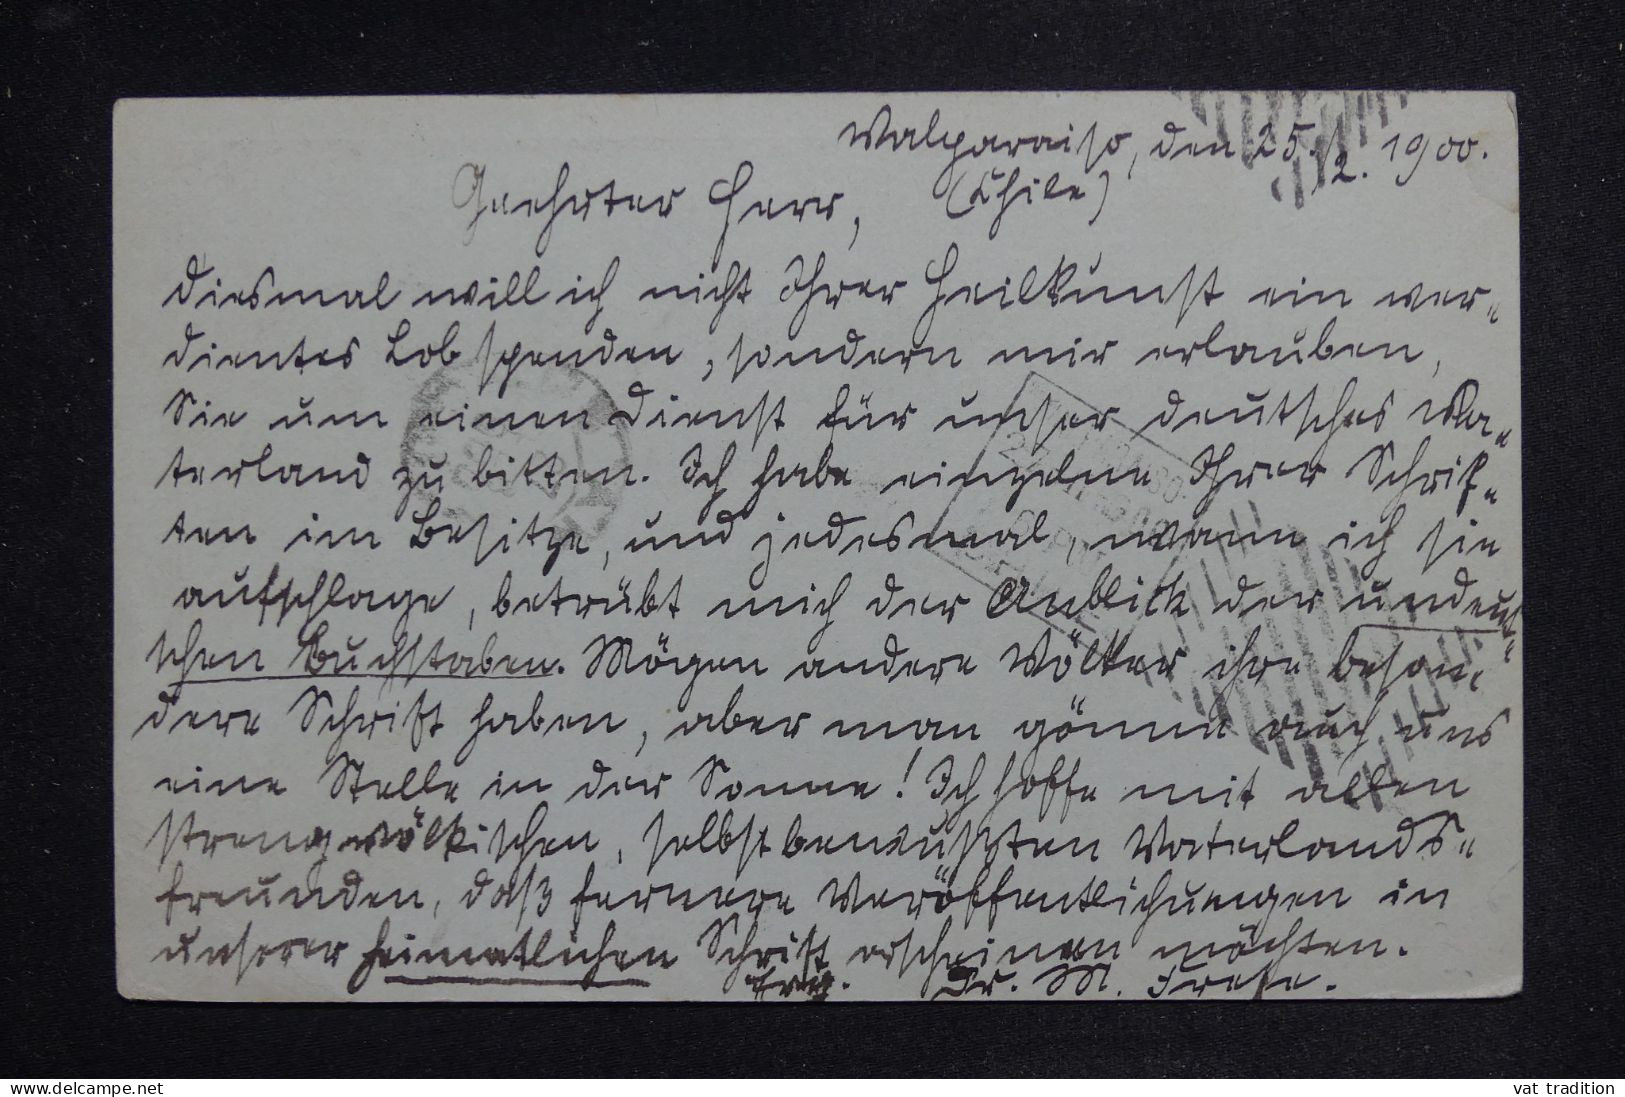 Walparaiso, den 25./2. 1900.
(Chile)
Geehrter Herr,
diesmal will ich nicht Ihrer Heilkunst ein ver-
dientes Lob spenden, sondern mir erlauben,
Sie um einen Dienst für unser deutsches Va-
terland zu bitten. Ich habe einzelne Ihrer Schrif-
ten im Besitze, und jedesmal, wann ich sie
aufschlage, betrübt mich der Anblick der undeut-
schen Buchstaben. Mögen andere Völker ihre beson-
dere Schrift haben, aber man gönne auch uns
eine Stelle in der Sonne! Ich hoffe mit allen
strengvölkischen, selbstbewußten Vaterlands-
freunden, daß fernere Veröffentlichungen in
unserer heimatlichen Schrift erscheinen möchten.
Dr. M. Frese.
delcampe.net
vat tradition